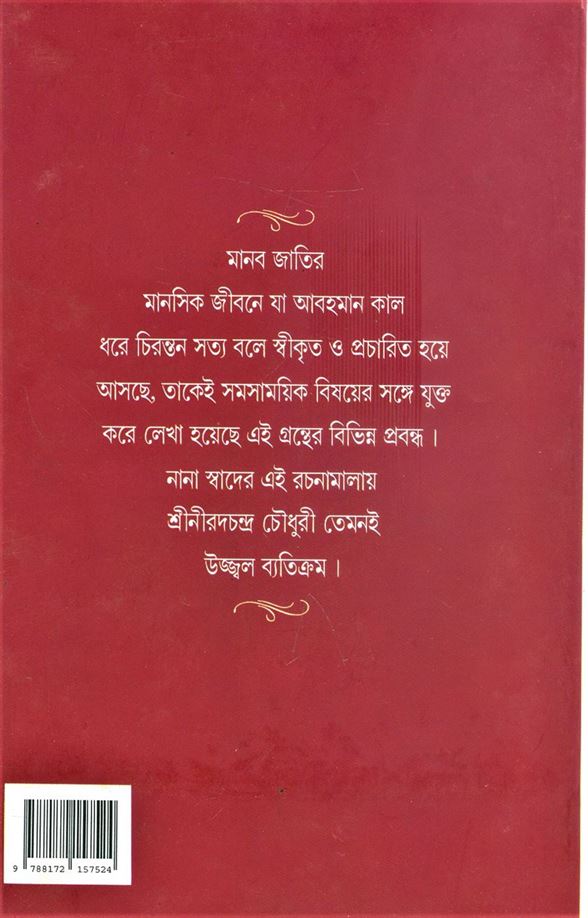 মানব জাতির
মানসিক জীবনে যা আবহমান কাল
ধরে চিরন্তন সত্য বলে স্বীকৃত ও প্রচারিত হয়ে
আসছে, তাকেই সমসাময়িক বিষয়ের সঙ্গে যুক্ত
করে লেখা হয়েছে এই গ্রন্থের বিভিন্ন প্রবন্ধ।
নানা স্বাদের এই রচনামালায়
শ্রীনীরদচন্দ্র চৌধুরী তেমনই
উজ্জ্বল ব্যতিক্রম।
9 788172 157524